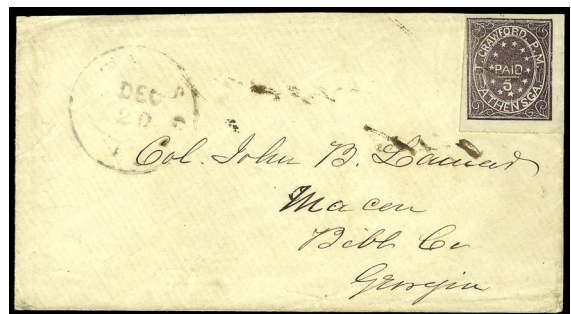 CRAWFORD, P.M.
PAID
5
ATHENS, GA.
DEC
20
Col. John B. Lamar
Macon
Bibb Co
Georgia